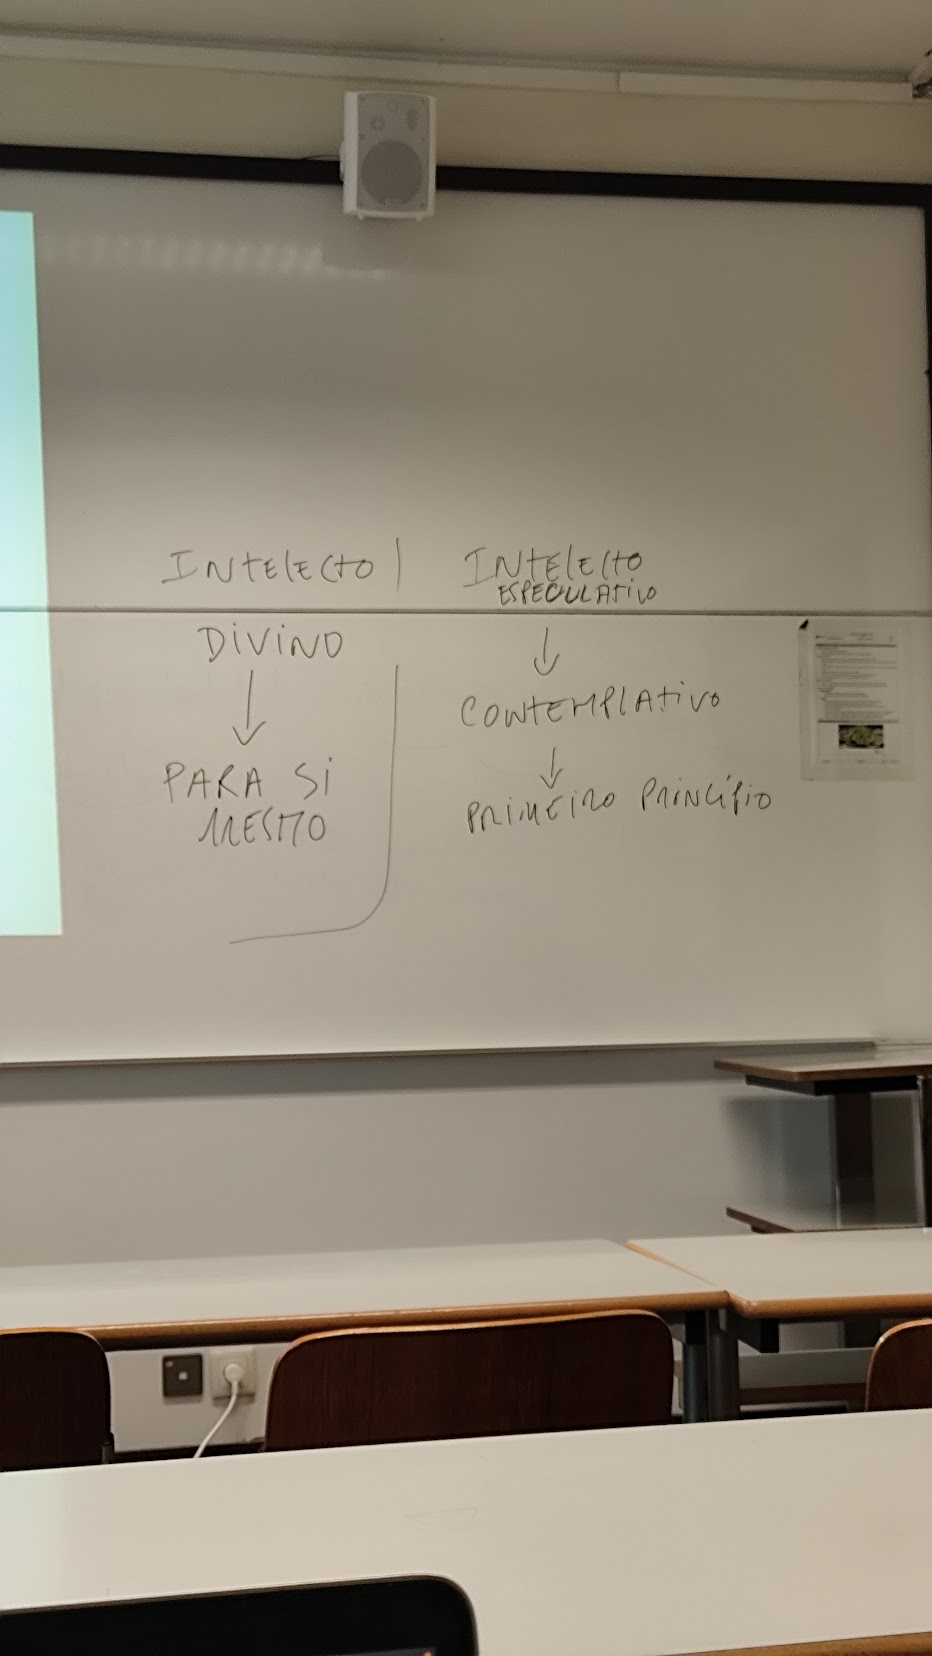 INTELECTO
DIVINO
↓
PARA SI
MESMO
INTELECTO
ESPECULATIVO
↓
CONTEMPLATIVO
↓
PRIMEIRO PRINCÍPIO